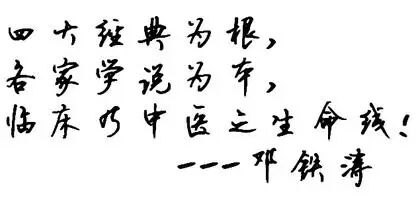 四大经典为根，
各家学说为本，
临床乃中医之生命线！
---邓铁涛